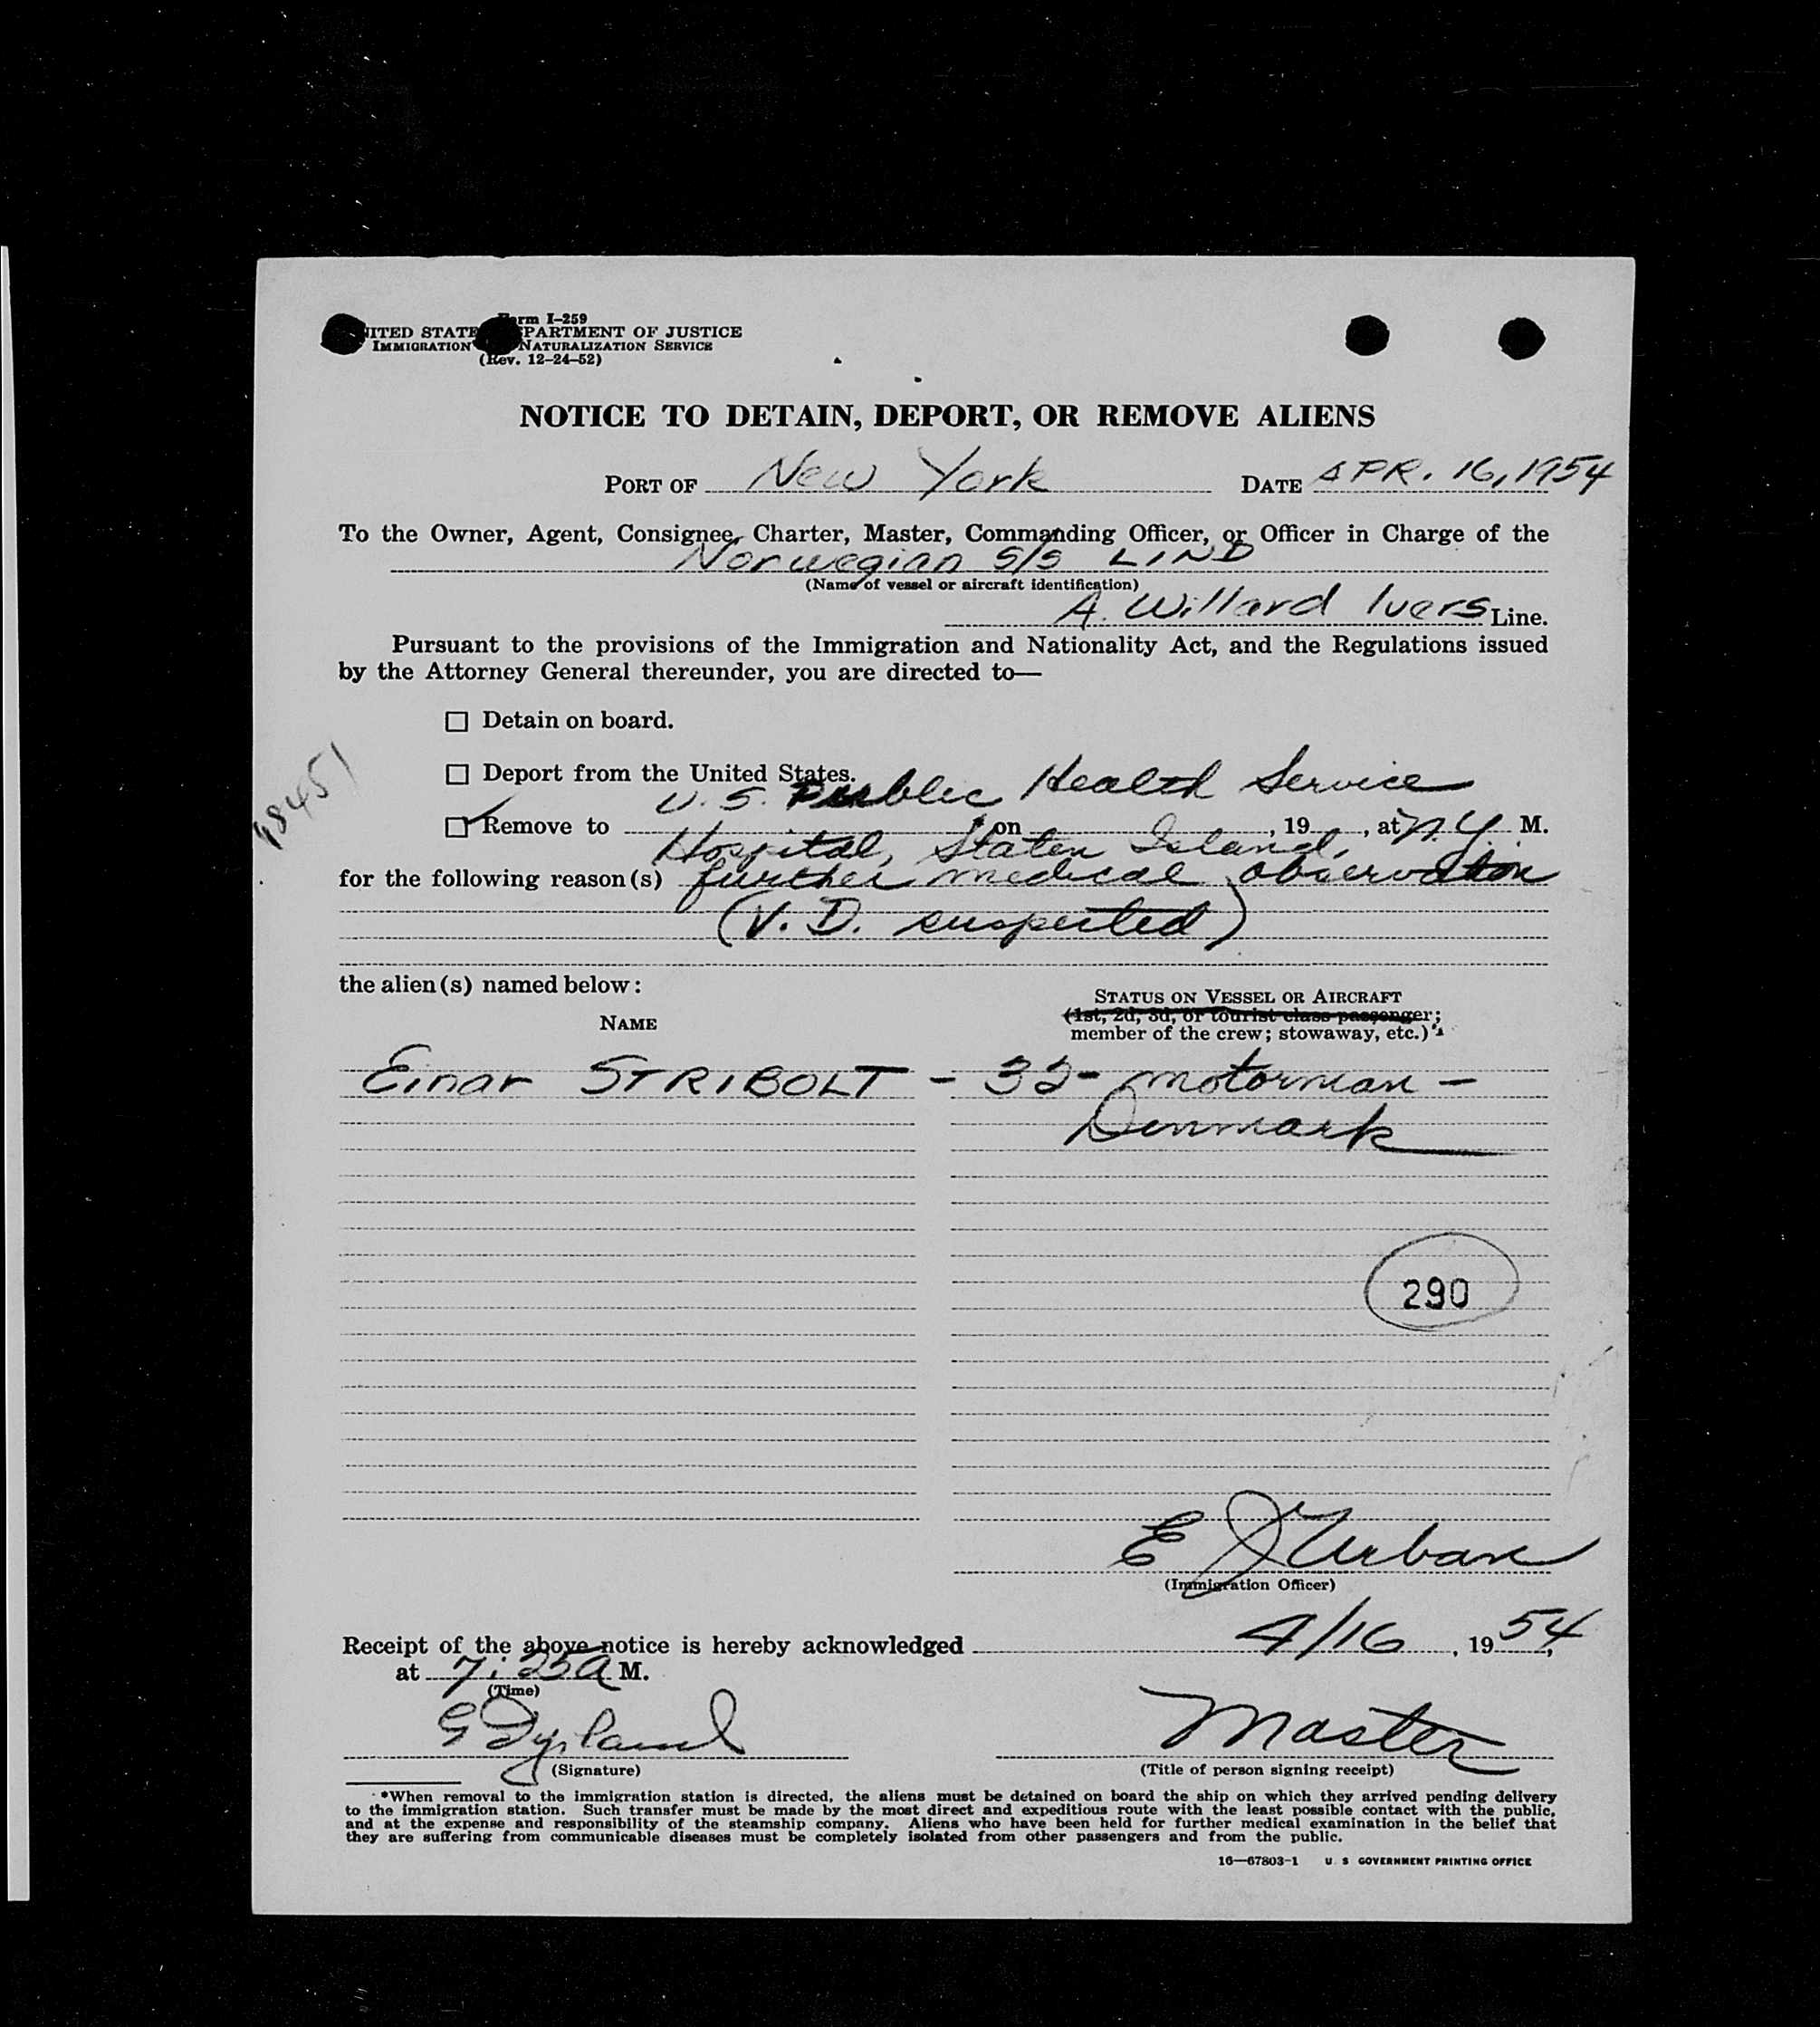 Form I-259
UNITED STATES DEPARTMENT OF JUSTICE
IMMIGRATION NATURALIZATION SERVICE
(Rev. 12-24-52)
NOTICE TO DETAIN, DEPORT, OR REMOVE ALIENS
PORT OF New York DATE APR. 16, 1954
To the Owner, Agent, Consignee, Charter, Master, Commanding Officer, or Officer in Charge of the
Norwegian S/S LIND
(Name of vessel or aircraft identification)
A. Willard Ivers Line.
Pursuant to the provisions of the Immigration and Nationality Act, and the Regulations issued
by the Attorney General thereunder, you are directed to—
☐ Detain on board.
☐ Deport from the United States.
U. S. Public Health Service
☑ Remove to , on , 19 , at N.Y. M.
Hospital, Staten Island,
for the following reason(s) further medical observation
(V. D. suspected)
the alien(s) named below:
STATUS ON VESSEL OR AIRCRAFT
(1st, 2d, 3d, or tourist class passenger;
member of the crew; stowaway, etc.)
NAME
Einar STRIBOLT - 32 - motorman -
Denmark
290
E J Urban
(Immigration Officer)
Receipt of the above notice is hereby acknowledged 4/16, 1954,
at 7:25 A M.
(Time)
Master
(Signature) (Title of person signing receipt)
*When removal to the immigration station is directed, the aliens must be detained on board the ship on which they arrived pending delivery
to the immigration station. Such transfer must be made by the most direct and expeditious route with the least possible contact with the public,
and at the expense and responsibility of the steamship company. Aliens who have been held for further medical examination in the belief that
they are suffering from communicable diseases must be completely isolated from other passengers and from the public.
16—67803-1 U S GOVERNMENT PRINTING OFFICE